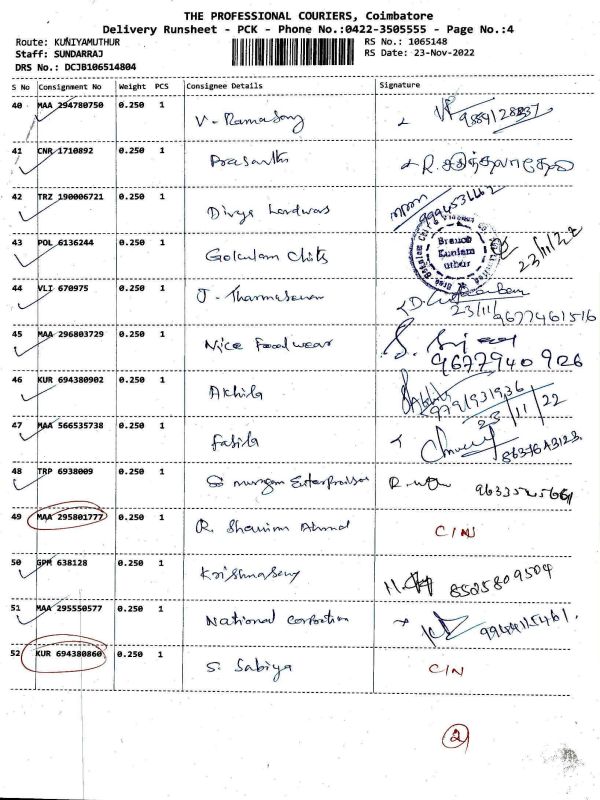 THE PROFESSIONAL COURIERS, Coimbatore
Delivery Runsheet - PCK - Phone No.:0422-3505555 - Page No.:4
Route: KUNIYAMUTHUR RS No.: 1065148
Staff: SUNDARRAJ RS Date: 23-Nov-2022
DRS No.: DCJB106514804
S No Consignment No Weight PCS Consignee Details Signature
40 MAA 294780750 0.250 1 V. Ramasamy
41 CNR 1710892 0.250 1 Prasanth
42 TRZ 190006721 0.250 1 Divya
43 POL 6136244 0.250 1 Gokulam Chits 23/11/22
Branch
Kuniam
uthur
44 VLI 670975 0.250 1 J. 23/11 9677461516
45 MAA 296803729 0.250 1 Nice Footwear 9677940926
46 KUR 694380902 0.250 1 Akhila 9791931936
23/11/22
47 MAA 566535738 0.250 1 Fasila
48 TRP 6938009 0.250 1 S murugan Enterprises
49 MAA 295801777 0.250 1 R. Ahmad C/N
50 GPM 638128 0.250 1 Krishnasamy 8525809504
51 MAA 295550577 0.250 1 National
52 KUR 694380860 0.250 1 S. Sabiya C/N
2